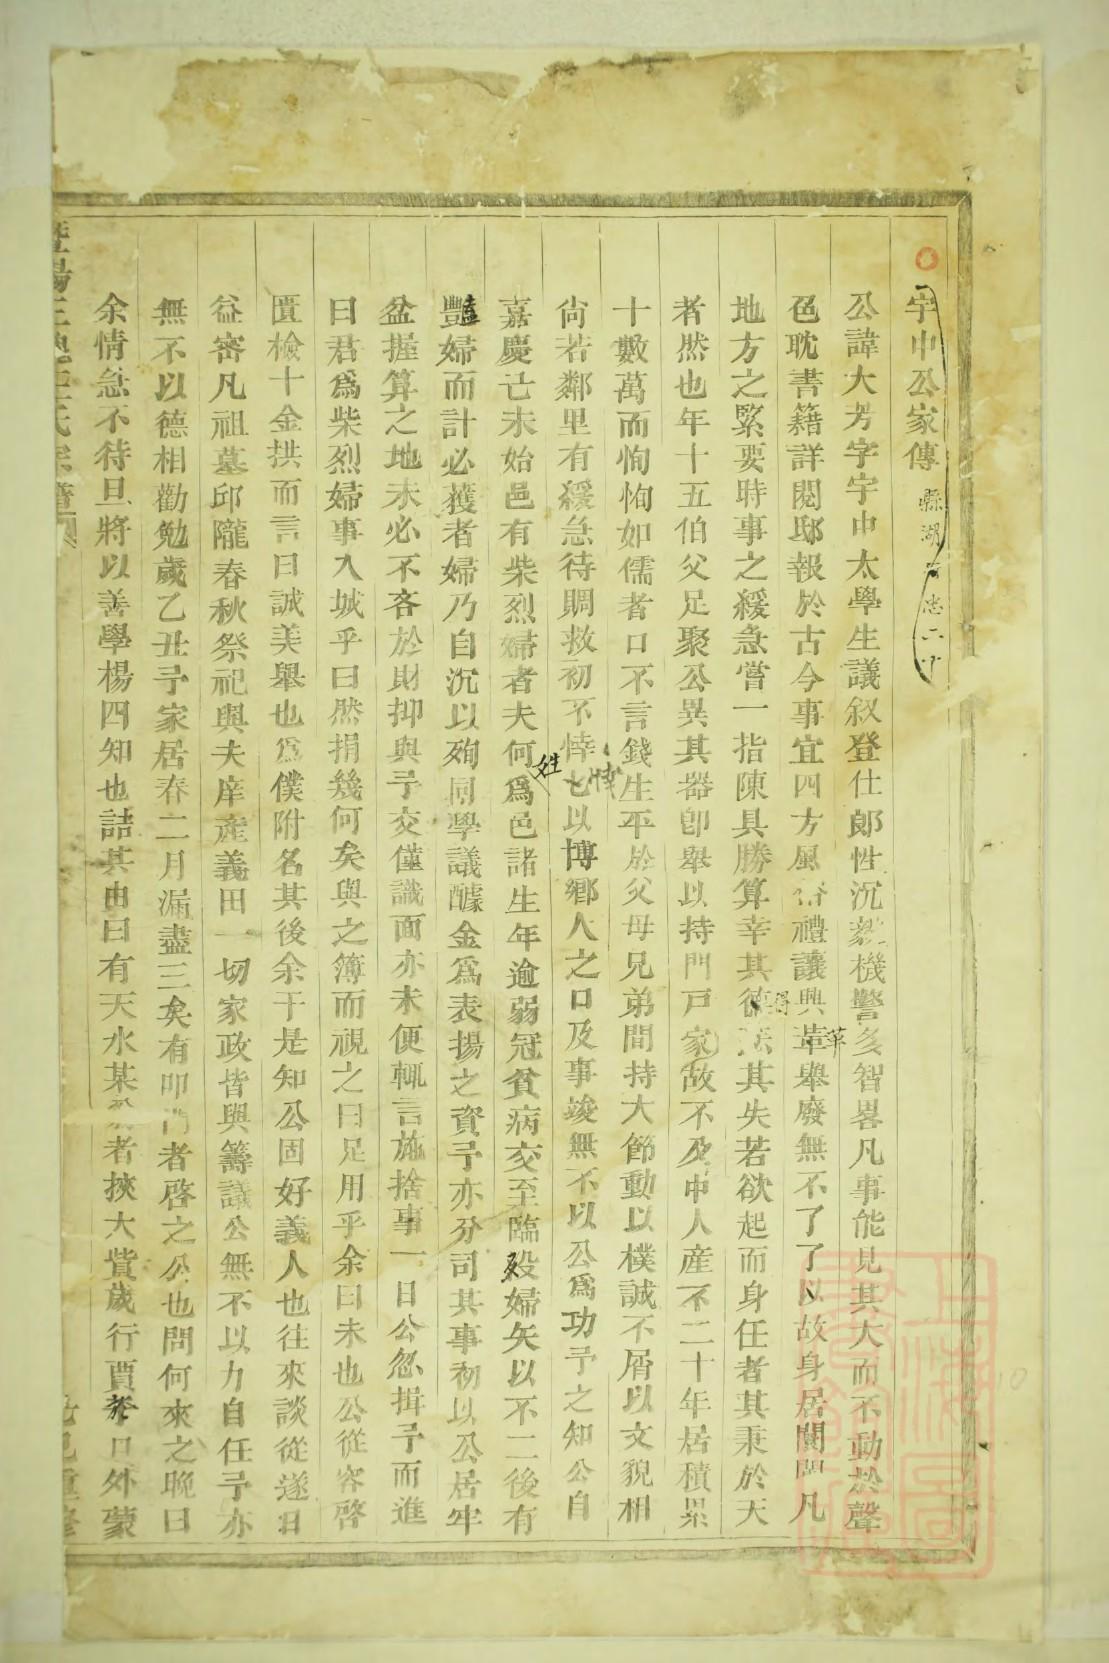 宇中公家傳
公諱大芳字宇中太學生議叙登仕郎性沉毅機警多智畧凡事能見其大而不動於聲
色耽書籍詳閱邸報於古今事宜四方風俗禮讓興革舉廢無不了了以故身居闤闠凡
地方之緊要時事之緩急嘗一指陳具勝算幸其德其失若欲起而身任者其秉於天
者然也年十五伯父足聚公異其器卽舉以持門戸家故不及中人產不二十年居積累
十數萬而恂恂如儒者口不言錢生平於父母兄弟間持大節動以樸誠不屑以文貌相
尙若鄰里有緩急待賙救初不悻也以博鄉人之口及事竣無不以公爲功予之知公自
嘉慶己未始邑有柴烈婦者夫何爲邑諸生年逾弱冠貧病交至臨殁婦矢以不二後有
豔婦而計必獲者婦乃自沉以殉同學議醵金爲表揚之資予亦分司其事初以公居牢
盆握算之地未必不吝於財抑與予交僅識面亦未便輒言施捨事一日公忽揖予而進
曰君爲柴烈婦事入城乎曰然捐幾何矣與之簿而視之曰足用乎余曰未也公從容啓
匱檢十金拱而言曰誠美舉也爲僕附名其後余于是知公固好義人也往來談從遂日
益審凡祖墓邱隴春秋祭祀與夫庠產義田一切家政皆與籌議公無不以力自任予亦
無不以德相勸勉歲乙丑予家居春二月漏盡三矣有叩門者啓之公也問何來之晚曰
余情急不待旦將以善學楊四知也詰其由曰有天水某者挾大貲歲行賈口外蒙